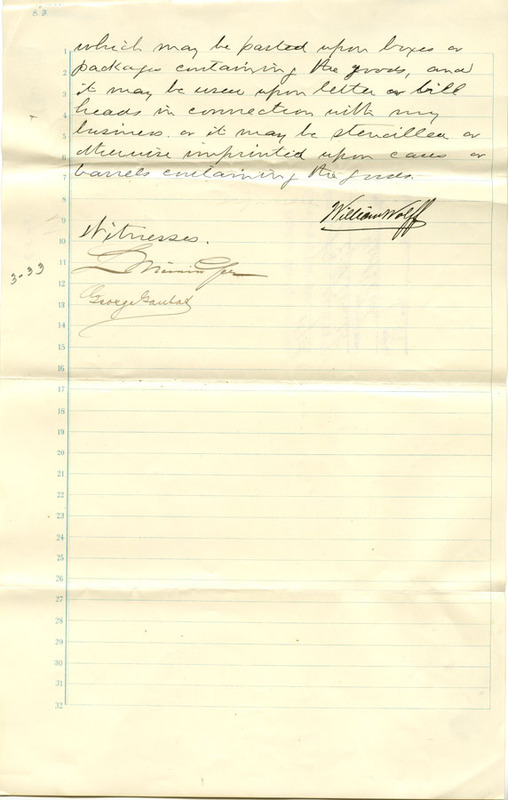 which may be pasted upon boxes or
packages containing the goods, and
it may be used upon letter or bill
heads in connection with my
business. or it may be stencilled or
otherwise imprinted upon cases or
barrels containing the goods.
William Wolff
Witnesses.
George
3-33
1
2
3
4
5
6
7
8
9
10
11
12
13
14
15
16
17
18
19
20
21
22
23
24
25
26
27
28
29
30
31
32